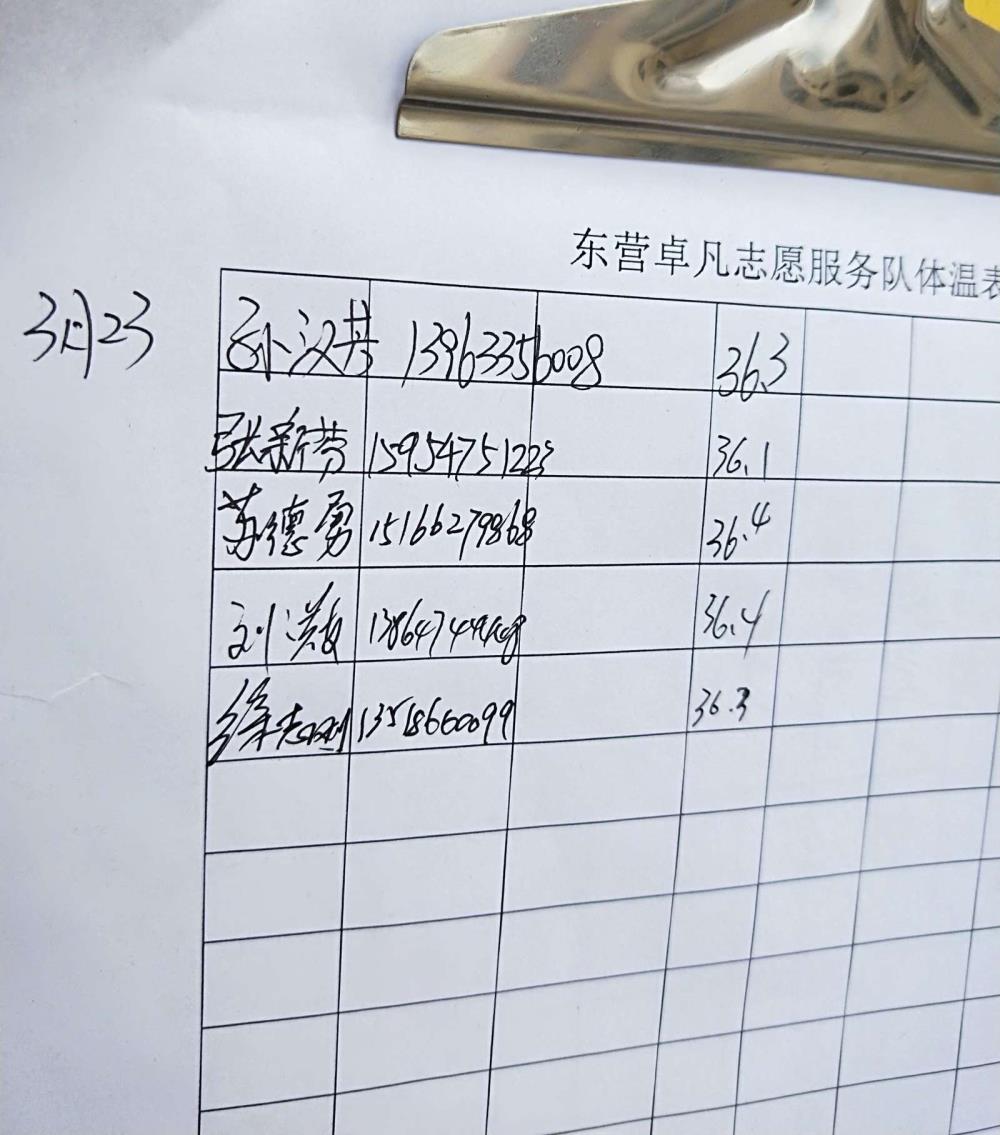 东营卓凡志愿服务队体温表
3月23
孙汉丹 13963356008 36.3
张新芬 15954751223 36.1
苏德勇 15166279868 36.4
刘 36.4
徐志刚 13518660099 36.3